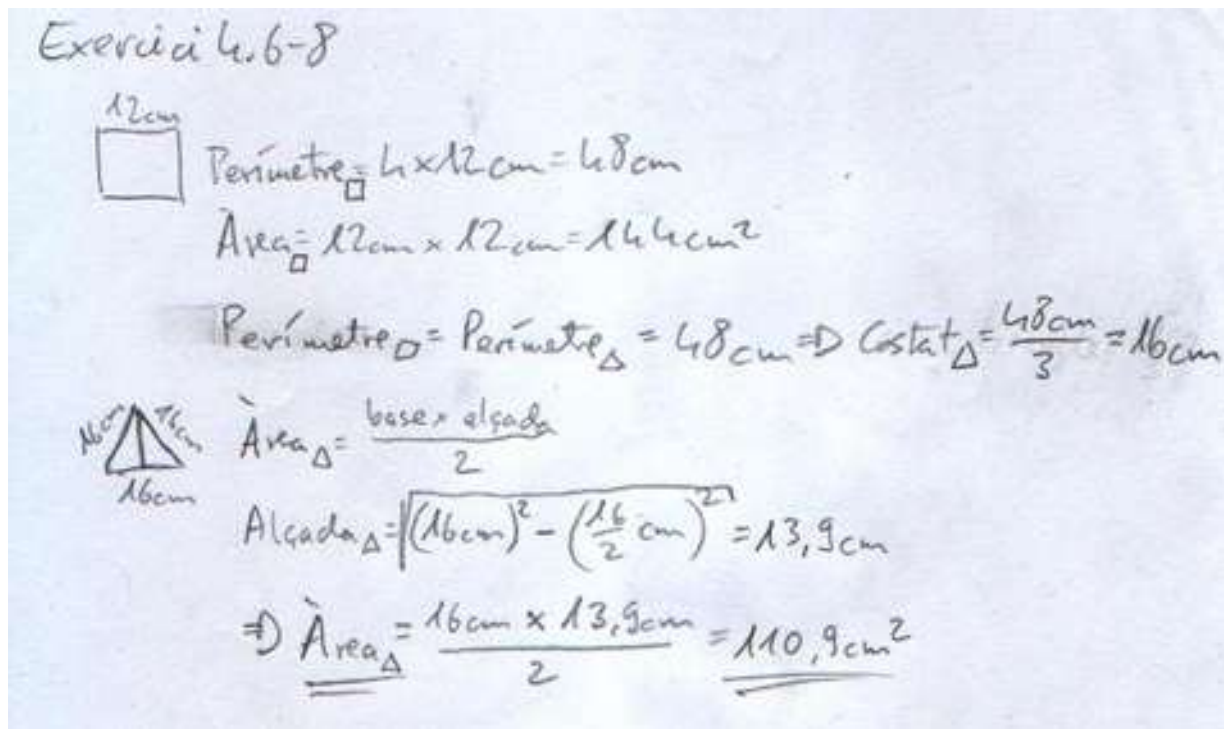 Exercici 4.6-8
12cm
Perímetre□ = 4×12cm = 48cm
Àrea□ = 12cm × 12cm = 144cm²
Perímetre□ = Perímetre△ = 48cm ⇒ Costat△ = 48cm/3 = 16cm
16cm 16cm
16cm
Àrea△ = base × alçada/2
Alçada△ = √((16cm)² - (16/2 cm)²) = 13,9cm
⇒ Àrea△ = 16cm × 13,9cm/2 = 110,9cm²